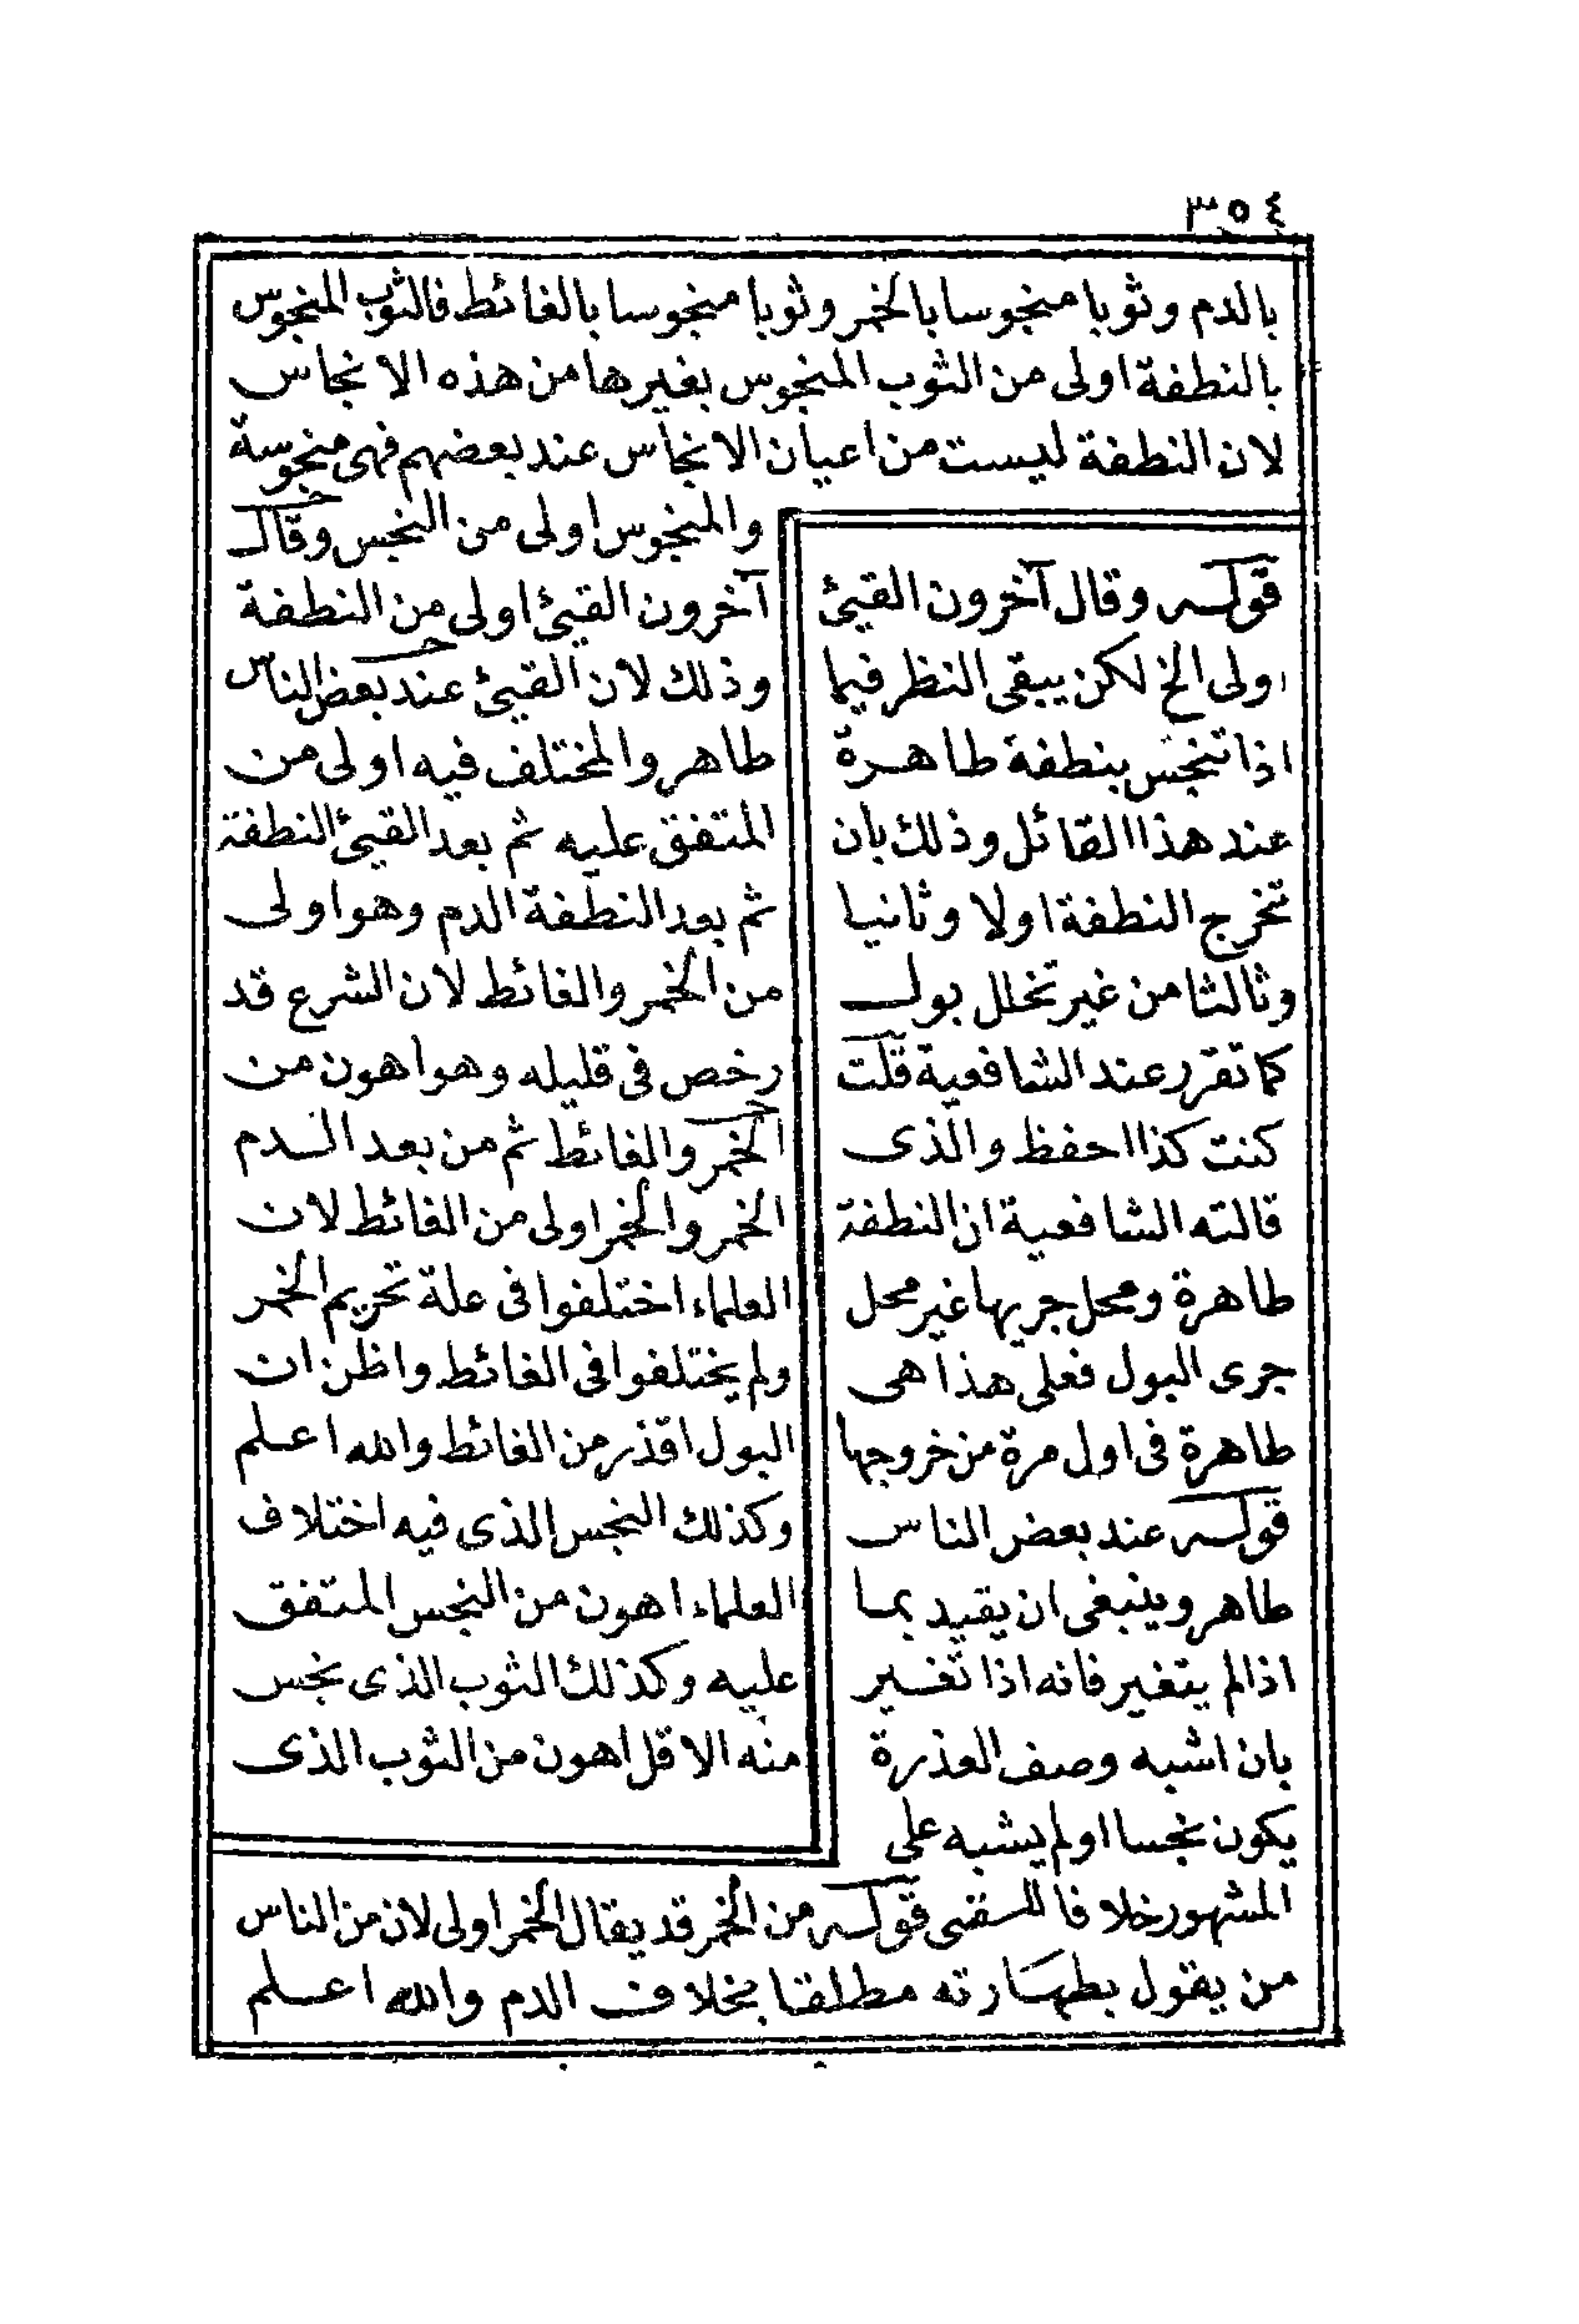 ٣٥٤
بالدم وثوبا منجوسا بالخمر وثوبا منجوسا بالغائط فالثوب المنجوس
بالنطفة اولى من الثوب المنجوس بغيرها من هذه الانجاس
لان النطفة ليست من اعيان الانجاس عند بعضهم فهى منجوسة
والمنجوس اولى من النجس وقال
آخرون القيئ اولى من النطفة
وذلك لان القيئ عند بعض الناس
طاهر والمختلف فيه اولى من
المتفق عليه ثم بعد القيئ النطفة
ثم بعد النطفة الدم وهو اولى
من الخمر والغائط لان الشرع قد
رخص فى قليله وهو اهون من
الخمر والغائط ثم من بعد الدم
الخمر والخمر اولى من الغائط لان
العلماء اختلفوا فى علة تحريم الخمر
ولم يختلفوا فى الغائط واظن ان
البول اقذر من الغائط والله اعلم
وكذلك النجس الذى فيه اختلاف
العلماء اهون من النجس المتفق
عليه وكذلك الثوب الذى نجس
منه الاقل اهون من الثوب الذى
قوله وقال آخرون القيئ
اولى الخ لكن يبقى النظر فيما
اذا تنجس بنطفة طاهرة
عند هذا القائل وذلك بان
تخرج النطفة اولا وثانيا
وثالثا من غير تخلل بول
كما تقرر عند الشافعية قلت
كنت كذا احفظ والذى
قالته الشافعية ان النطفة
طاهرة ومحل جريها غير محل
جرى البول فعلى هذا هى
طاهرة فى اول مرة من خروجها
قوله عند بعض الناس
طاهر وينبغى ان يقيد بما
اذا لم يتغير فانه اذا تغير
بان اشبه وصف العذرة
يكون نجسا او لم يشبه على
المشهور خلافا قوله من الخمر قد يقال الخمر اولى لان من الناس
من يقول بطهارته مطلقا بخلاف الدم والله اعلم